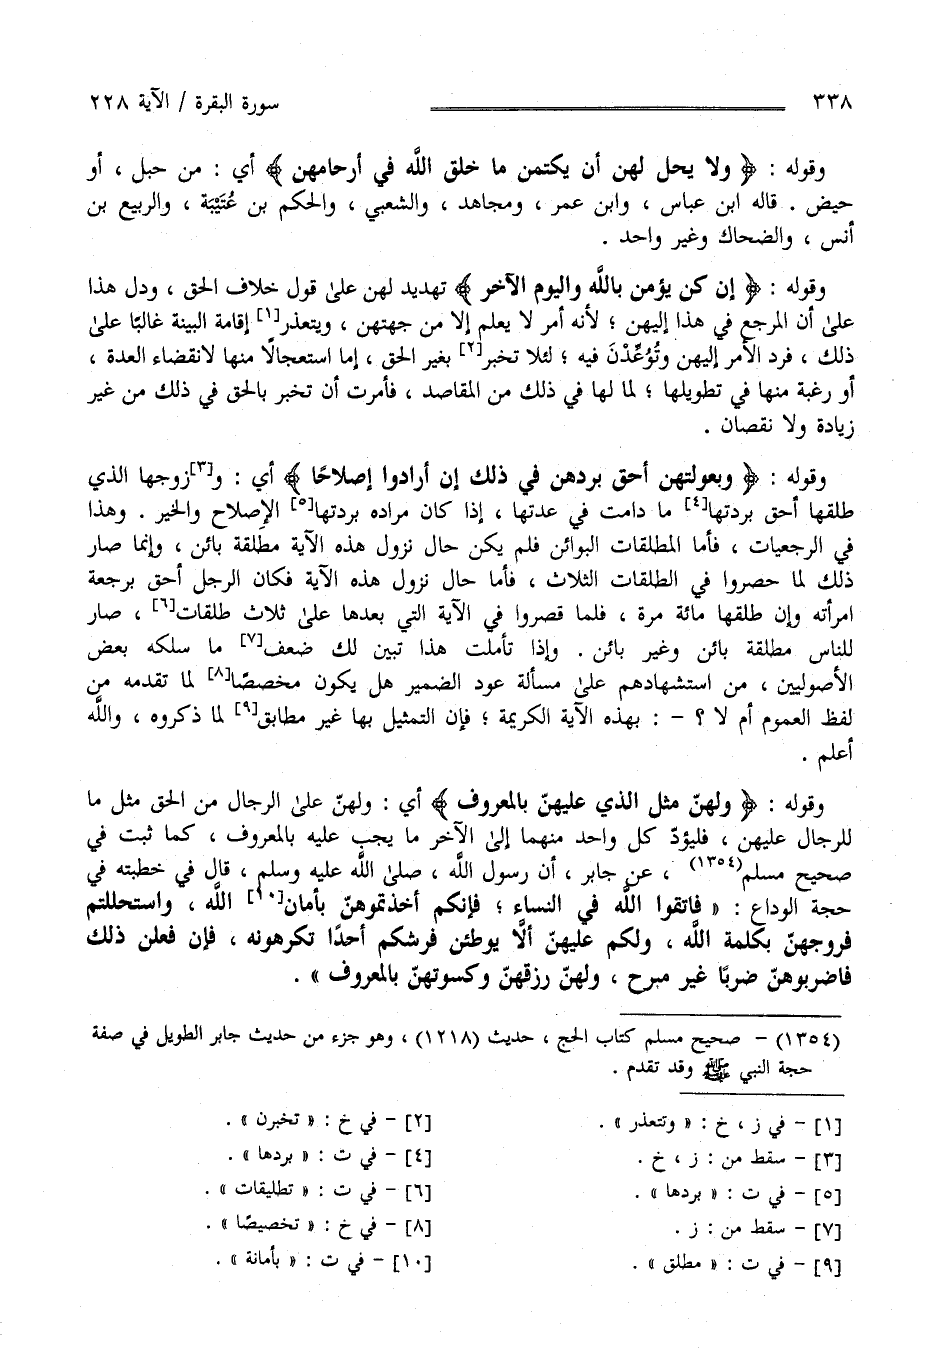 ٣٣٨ سورة البقرة / الآية ٢٢٨
وقوله : ﴿ ولا يحل لهن أن يكتمن ما خلق اللَّه في أرحامهن ﴾ أي : من حبل ، أو
حيض . قاله ابن عباس ، وابن عمر ، ومجاهد ، والشعبي ، والحكم بن عُتَيْبَة ، والربيع بن
أنس ، والضحاك وغير واحد .
وقوله : ﴿ إن كن يؤمن باللَّه واليوم الآخر ﴾ تهديد لهن علىٰ قول خلاف الحق ، ودل هذا
علىٰ أن المرجع في هذا إليهن ؛ لأنه أمر لا يعلم إلا من جهتهن ، ويتعذر[١] إقامة البينة غالبًا علىٰ
ذلك ، فرد الأمر إليهن وتُوُعِّدْنَ فيه ؛ لئلا تخبر[٢] بغير الحق ، إما استعجالًا منها لانقضاء العدة ،
أو رغبة منها في تطويلها ؛ لما لها في ذلك من المقاصد ، فأمرت أن تخبر بالحق في ذلك من غير
زيادة ولا نقصان .
وقوله : ﴿ وبعولتهن أحق بردهن في ذلك إن أرادوا إصلاحًا ﴾ أي : و[٣]زوجها الذي
طلقها أحق بردتها[٤] ما دامت في عدتها ، إذا كان مراده بردتها[٥] الإصلاح والخير . وهذا
في الرجعيات ، فأما المطلقات البوائن فلم يكن حال نزول هذه الآية مطلقة بائن ، وإنما صار
ذلك لما حصروا في الطلقات الثلاث ، فأما حال نزول هذه الآية فكان الرجل أحق برجعة
امرأته وإن طلقها مائة مرة ، فلما قصروا في الآية التي بعدها علىٰ ثلاث طلقات[٦] ، صار
للناس مطلقة بائن وغير بائن . وإذا تأملت هذا تبين لك ضعف[٧] ما سلكه بعض
الأصوليين ، من استشهادهم علىٰ مسألة عود الضمير هل يكون مخصصًا[٨] لما تقدمه من
لفظ العموم أم لا ؟ - : بهذه الآية الكريمة ؛ فإن التمثيل بها غير مطابق[٩] لما ذكروه ، واللَّه
أعلم .
وقوله : ﴿ ولهنّ مثل الذي عليهنّ بالمعروف ﴾ أي : ولهنّ علىٰ الرجال من الحق مثل ما
للرجال عليهن ، فليؤدّ كل واحد منهما إلىٰ الآخر ما يجب عليه بالمعروف ، كما ثبت في
صحيح مسلم(١٣٥٤) ، عن جابر ، أن رسول اللَّه ، صلىٰ اللَّه عليه وسلم ، قال في خطبته في
حجة الوداع : « فاتقوا اللَّه في النساء ؛ فإنكم أخذتموهنّ بأمان[١٠] اللَّه ، واستحللتم
فروجهنّ بكلمة اللَّه ، ولكم عليهنّ ألَّا يوطئن فرشكم أحدًا تكرهونه ، فإن فعلن ذلك
فاضربوهنّ ضربًا غير مبرح ، ولهنّ رزقهنّ وكسوتهنّ بالمعروف » .
(١٣٥٤) - صحيح مسلم كتاب الحج ، حديث (١٢١٨) ، وهو جزء من حديث جابر الطويل في صفة
حجة النبي ﷺ وقد تقدم .
[١] - في ز ، خ : « وتتعذر » . [٢] - في خ : « تخبرن » .
[٣] - سقط من : ز ، خ . [٤] - في ت : « بردها » .
[٥] - في ت : « بردها » . [٦] - في ت : « تطليقات » .
[٧] - سقط من : ز . [٨] - في خ : « تخصيصًا » .
[٩] - في ت : « مطلق » . [١٠] - في ت : « بأمانة » .